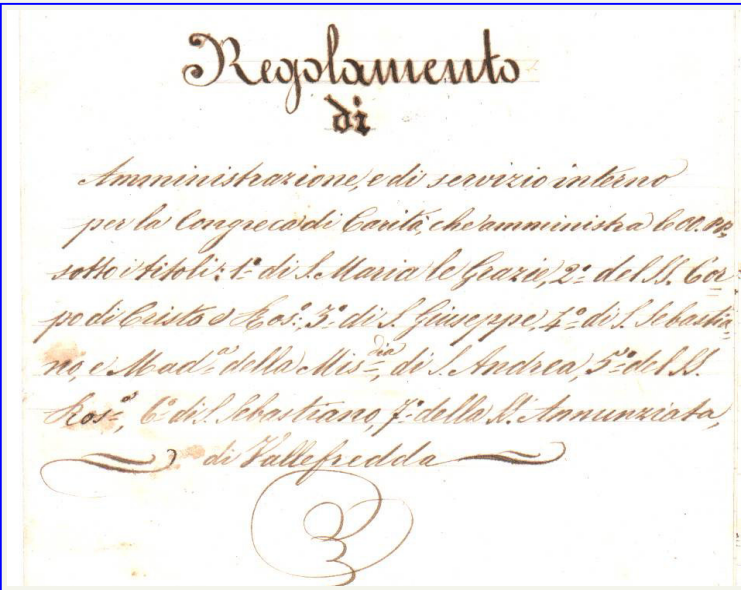 Regolamento
di
Amministrazione, e di servizio interno
per la Congreca di Carità, che amministra le OO. PP.
sotto i titoli: 1º di S. Maria le Grazie, 2º del SS. Cor
po di Cristo e Rosº, 3º di S. Giuseppe, 4º di S. Sebastia
no, e Madª della Misᵈⁱᵃ, di S. Andrea, 5º del SS.
Rosº, 6º di S. Sebastiano, 7º della SS. Annunziata,
di Vallefredda